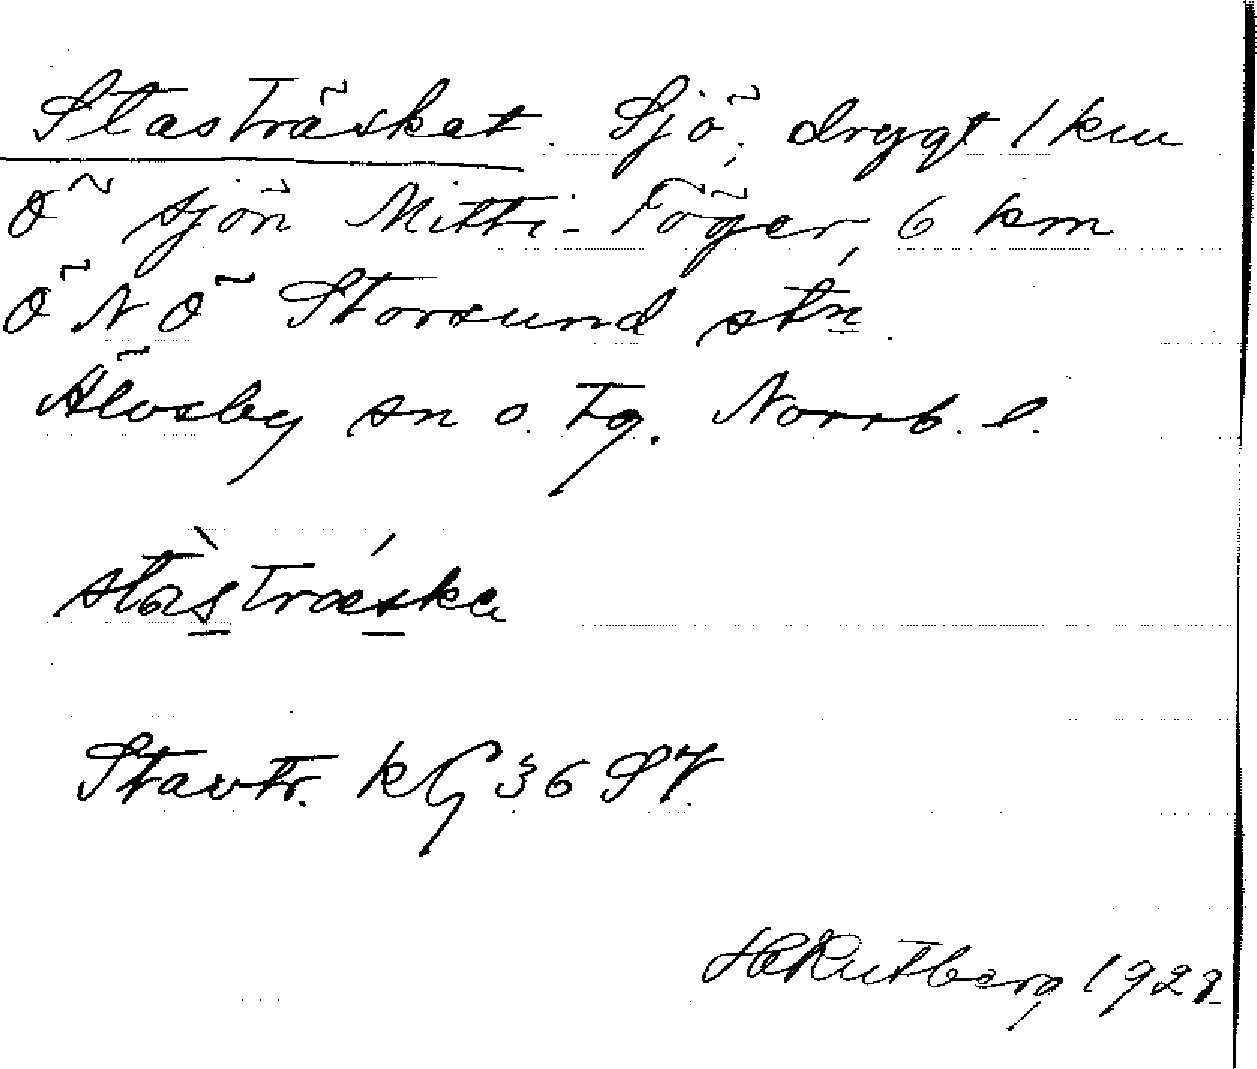 Stasträsket. Sjö, drygt 1 km
Ö sjön Mitti-Töger, 6 km
ÖNÖ Storsund stn.
Älvsby sn o. tg. Norrb. l.
stàstrǽska
Stavtr. kG 36 SV
HRutberg 1928